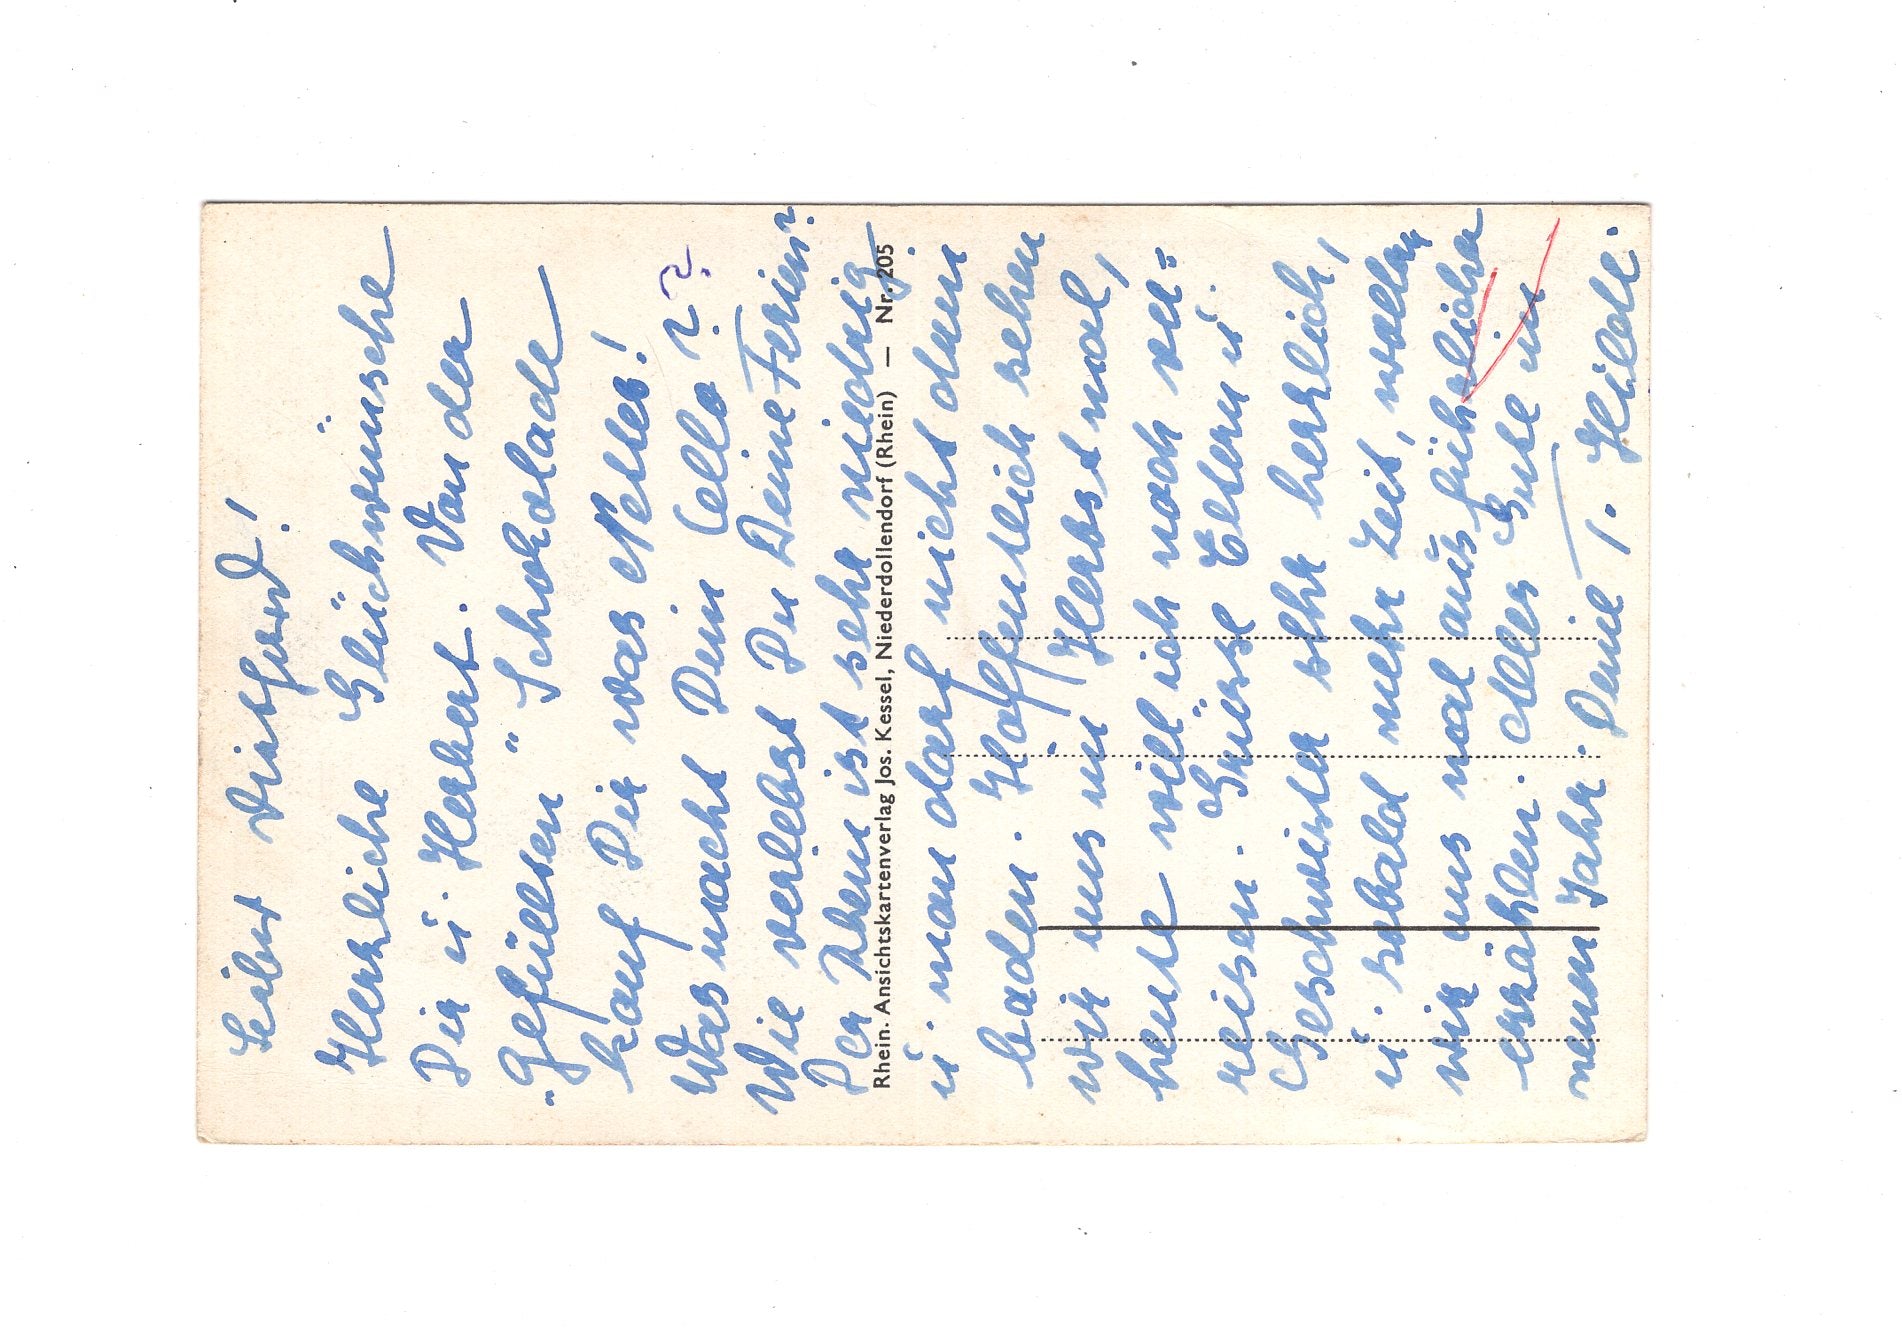 Lieber Diethard!
Herzliche Glückwünsche
Dir u. Herbert. Von der
"Gefüllten" Schokolade
kauf Dir was Nettes!
Was macht Dein Cello??
Wie verlebst Du Deine Ferien?
Der Rhein ist sehr niedrig
Rhein. Ansichtskartenverlag Jos. Kessel, Niederdollendorf (Rhein) — Nr. 205
u. man darf nicht drin
baden. Hoffentlich sehen
wir uns im Herbst mal,
heute will ich noch ver=
reisen. Grüsse Eltern u.
Geschwister sehr herzlich,
u. sobald mehr Zeit, wollen
wir uns mal ausführlicher
erzählen. Alles Gute im
neuen Jahr. Deine T. Hilde.